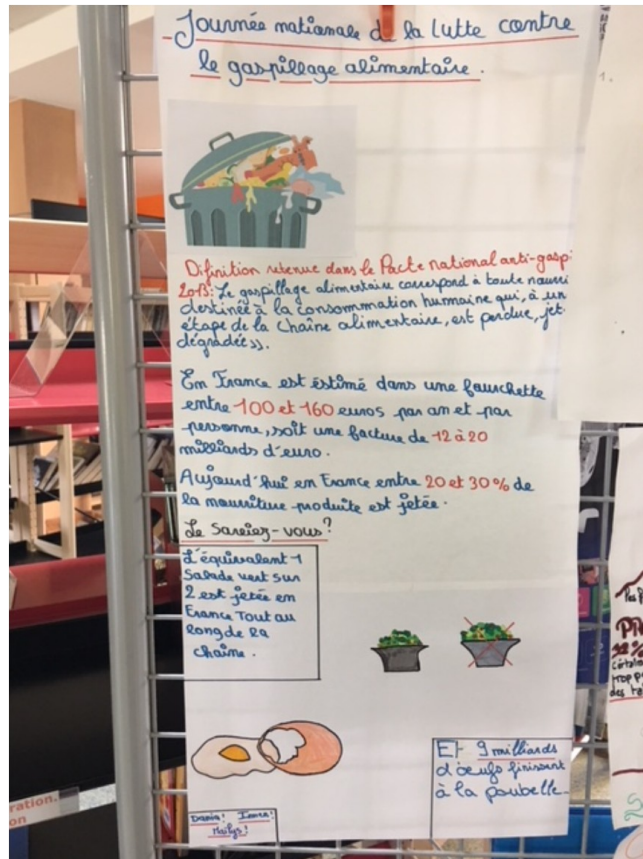 - Journée nationale de la lutte contre
le gaspillage alimentaire.
Difinition retenue dans le Pacte national anti-gaspi
2013: Le gaspillage alimentaire correspond à toute nourri
destinée à la consommation humaine qui, à un
étape de la chaîne alimentaire, est perdue, jet
dégradée».
En France est éstimé dans une fourchette
entre 100 et 160 euros par an et par
personne, soit une facture de 12 à 20
milliards d'euro.
Aujourd'hui en France entre 20 et 30% de
la nourriture produite est jetée.
Le Saviez-vous?
L'équivalent 1
Salade vert sur
2 est jetée en
France Tout au
long de la
chaîne.
Et 9 milliards
d'œufs finissent
à la poubelle.
Dania! Imen!
Maïlys!
ration.
on